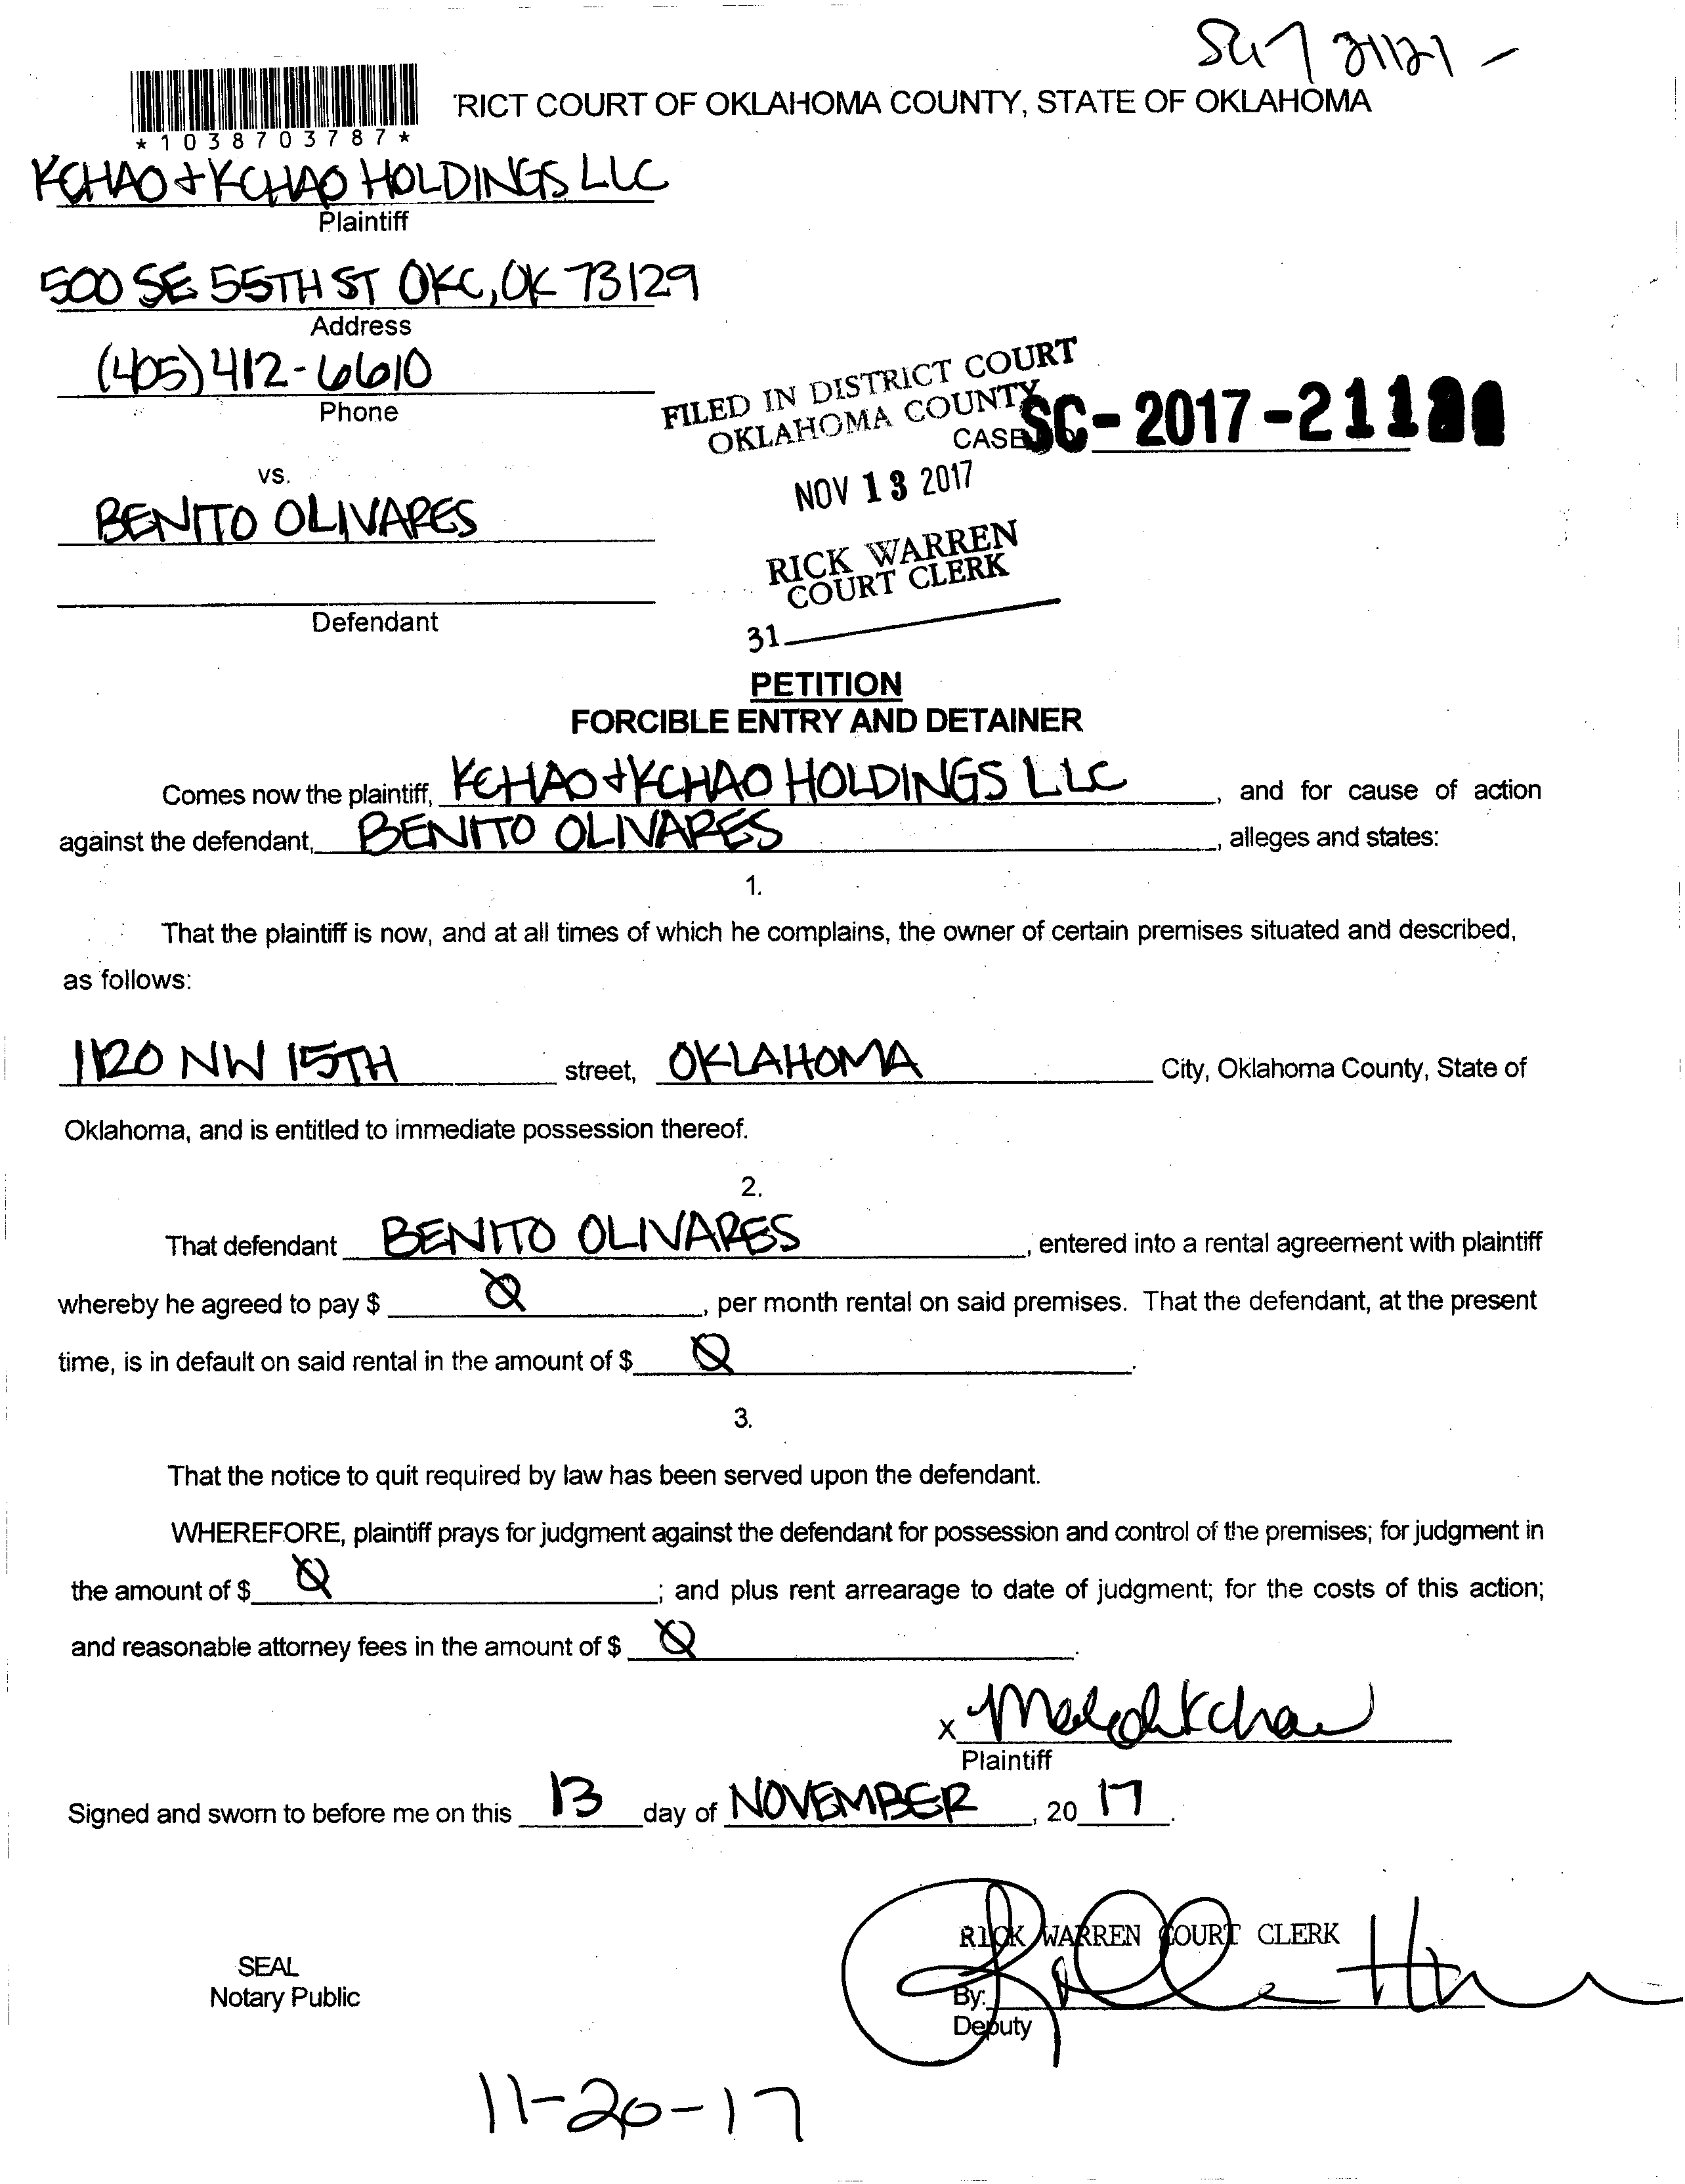 RICT COURT OF OKLAHOMA COUNTY, STATE OF OKLAHOMA
*1038703787*
KCHAO + KCHAO HOLDINGS LLC
Plaintiff
500 SE 55TH ST OKC, OK 73129
Address
(405) 412-6610
Phone
FILED IN DISTRICT COURT
OKLAHOMA COUNTY
CASE SC-2017-211
vs.
NOV 13 2017
BENITO OLIVARES
RICK WARREN
COURT CLERK
Defendant
31
PETITION
FORCIBLE ENTRY AND DETAINER
Comes now the plaintiff, KCHAO + KCHAO HOLDINGS LLC, and for cause of action
against the defendant, BENITO OLIVARES, alleges and states:
1.
That the plaintiff is now, and at all times of which he complains, the owner of certain premises situated and described,
as follows:
1120 NW 15TH street, OKLAHOMA City, Oklahoma County, State of
Oklahoma, and is entitled to immediate possession thereof.
2.
That defendant BENITO OLIVARES, entered into a rental agreement with plaintiff
whereby he agreed to pay $ Ø, per month rental on said premises. That the defendant, at the present
time, is in default on said rental in the amount of $ Ø.
3.
That the notice to quit required by law has been served upon the defendant.
WHEREFORE, plaintiff prays for judgment against the defendant for possession and control of the premises; for judgment in
the amount of $ Ø; and plus rent arrearage to date of judgment; for the costs of this action;
and reasonable attorney fees in the amount of $ Ø.
X
Plaintiff
Signed and sworn to before me on this 13 day of NOVEMBER, 20 17.
RICK WARREN COURT CLERK
SEAL
Notary Public
By:
Deputy
11-20-17